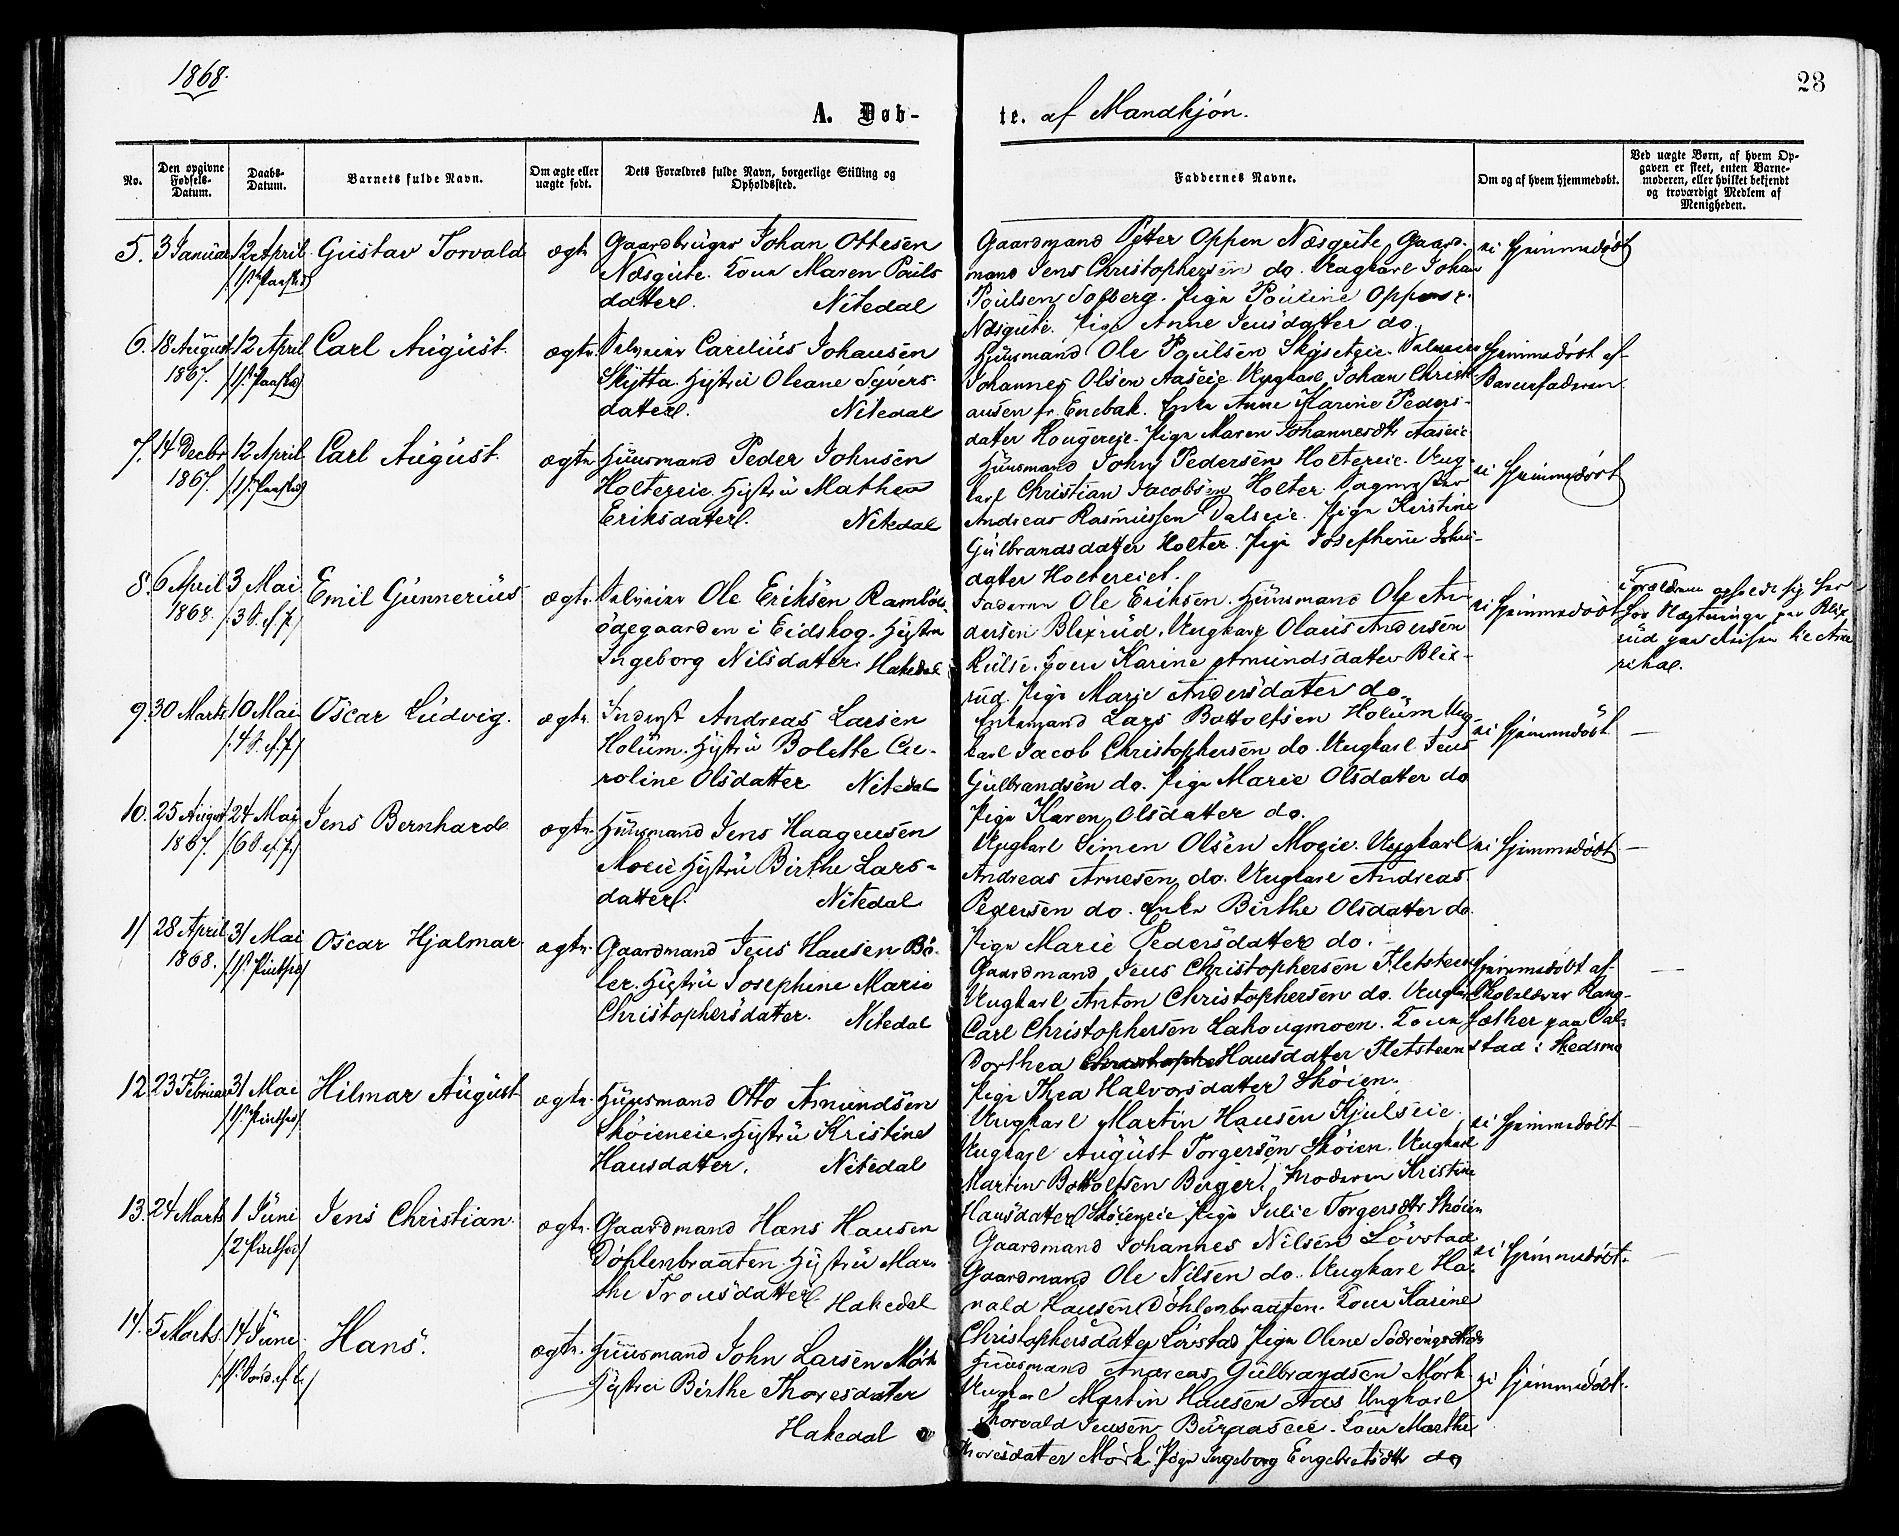 1868.
28
A. Døb-
te. af Mandkjøn.
No.
Den opgivne Fødsels-Datum.
Daabs-Datum.
Barnets fulde Navn.
Om ægte eller uægte født.
Dets Forældres fulde Navn, borgerlige Stilling og Opholdssted.
Faddernes Navne.
Om og af hvem hjemmedøbt.
Ved uægte Børn, af hvem Op-
gaven er skeet, enten Barne-
moderen, eller hvilket bekjendt
og troværdigt Medlem af
Menigheden.
5. 3 Januar 12 April Gustav Torvald ægte Gaardbruger Johan Ottesen
Næsgute. Kone Maren Pouls
datter. Nitedal
Gaardmand Petter Oppen Næsgute, Gaard-
mand Jens Christophersen do. Ungkarl Johan
Poulsen Solberg. Pige Pouline Oppen
Næsgute. Pige Anne Jensdatter do.
ei hjemmedøbt
6. 18 August 12 April Carl August ægte Carelius Johansen
1867.
Skytta. Hustru Oleane Syvers-
datter. Nitedal
Huusmand Ole Poulsen
Johannes Olsen Aaseie. Ungkarl Johan Christi-
ansen fr. Enebak. Enke Anne Karine Peders-
datter Hougereie. Pige Maren Johannesdtr Aaseie
hjemmedøbt af
Barnefaderen
7. 14 Decbr 12 April Carl August. ægte Huusmand Peder Johnsen
1867.
Holtereie. Hustru Mathea
Eriksdatter. Nitedal
Huusmand John Pedersen Holtereie. Ung-
karl Christian Jacobsen Holter.
Andreas Rasmussen Dalseie. Pige Kirstine
Gulbrandsdatter Holter. Pige Josephine
datter Holtereiet.
ei hjemmedøbt
8. 6 April 3 Mai Emil Gunnerius ægte Ole Eriksen
1868. /3 S. ef. P./
ødegaarden i Eidskog. Hustru
Ingeborg Nilsdatter. Hakedal
Faderen Ole Eriksen. Huusmand Ole An-
dersen Blexrud. Ungkarl Olaus Andersen
Kone Karine Amundsdatter Blex-
rud. Pige Marie Andersdatter do.
ei hjemmedøbt
Forældrene
9. 30 Marts 10 Mai Oscar Ludvig. ægte Inderst Andreas Larsen
/4 S. ef. P./
Holum. Hustru Bolette Ca-
roline Olsdatter Nitedal
Enkemand Lars Bottolfsen Holum Ung-
karl Jacob Christophersen do. Ungkarl Jens
Gulbrandsen do. Pige Marie Olsdatter do
Pige Karen Olsdatter do.
ei hjemmedøbt. —
10. 25 August 24 Mai Jens Bernhard. ægte Huusmand Jens Haagensen
1867. /6 S. ef. P./
Moeie Hustru Birthe Lars-
datter. Nitedal
Ungkarl Simen Olsen Moeie. Ungkarl
Andreas Arnesen do. Ungkarl Andreas
Pedersen do. Enke Birthe Olsdatter do.
Pige Marie Pedersdatter do.
ei hjemmedøbt —
11 28 April 31 Mai Oscar Hjalmar. ægte Gaardmand Jens Hansen Bø-
1868.
ler. Hustru Josephine Marie
Christophersdatter. Nitedal
Gaardmand Jens Christophersen Fletsteen
Ungkarl Anton Christophersen do. Ungkarl
Carl Christophersen Lahougmoen. Kone
Dorthea Hansdatter Fletsteen
Pige Thea Halvorsdatter Skøien.
hjemmedøbt af
Skolelærer Rang-
sæther paa Val-
stad i Skedsmo
—
12 23 Februar 31 Mai Hilmar August ægte. Huusmand Otto Amundsen
Skøieneie. Hustru Kristine
Hansdatter. Nitedal
Ungkarl Martin Hansen Kjulseie.
Ungkarl August Torgersen Skøien. Ungkarl
Martin Bottolfsen Berger. Moderen Kristine
Hansdatter Skøieneie. Pige Julie Torgersdtr Skøien
ei hjemmedøbt —
13. 24 Marts 1 Juni Jens Christian. ægte. Gaardmand Hans Hansen
Døhlenbraaten. Hustru Mar-
the Tronsdatter. Hakedal
Gaardmand Johannes Nilsen Løvstad
Gaardmand Ole Nilsen do. Ungkarl Ha-
rald Hansen Døhlenbraaten. Kone Karine
Christophersdatter Løvstad Pige Olene
ei hjemmedøbt. —
14. 5 Marts. 14 Juni. Hans. ægte. Huusmand John Larsen Mørk
Hustru Birthe Thoresdatter
Hakedal
Huusmand Andreas Gulbrandsen Mørk
Ungkarl Martin Hansen Aas Ungkarl
Thorvald Jensen Kone Marthe
Thoresdatter Mørk. Pige Ingeborg Engebretsdtr do
ei hjemmedøbt.